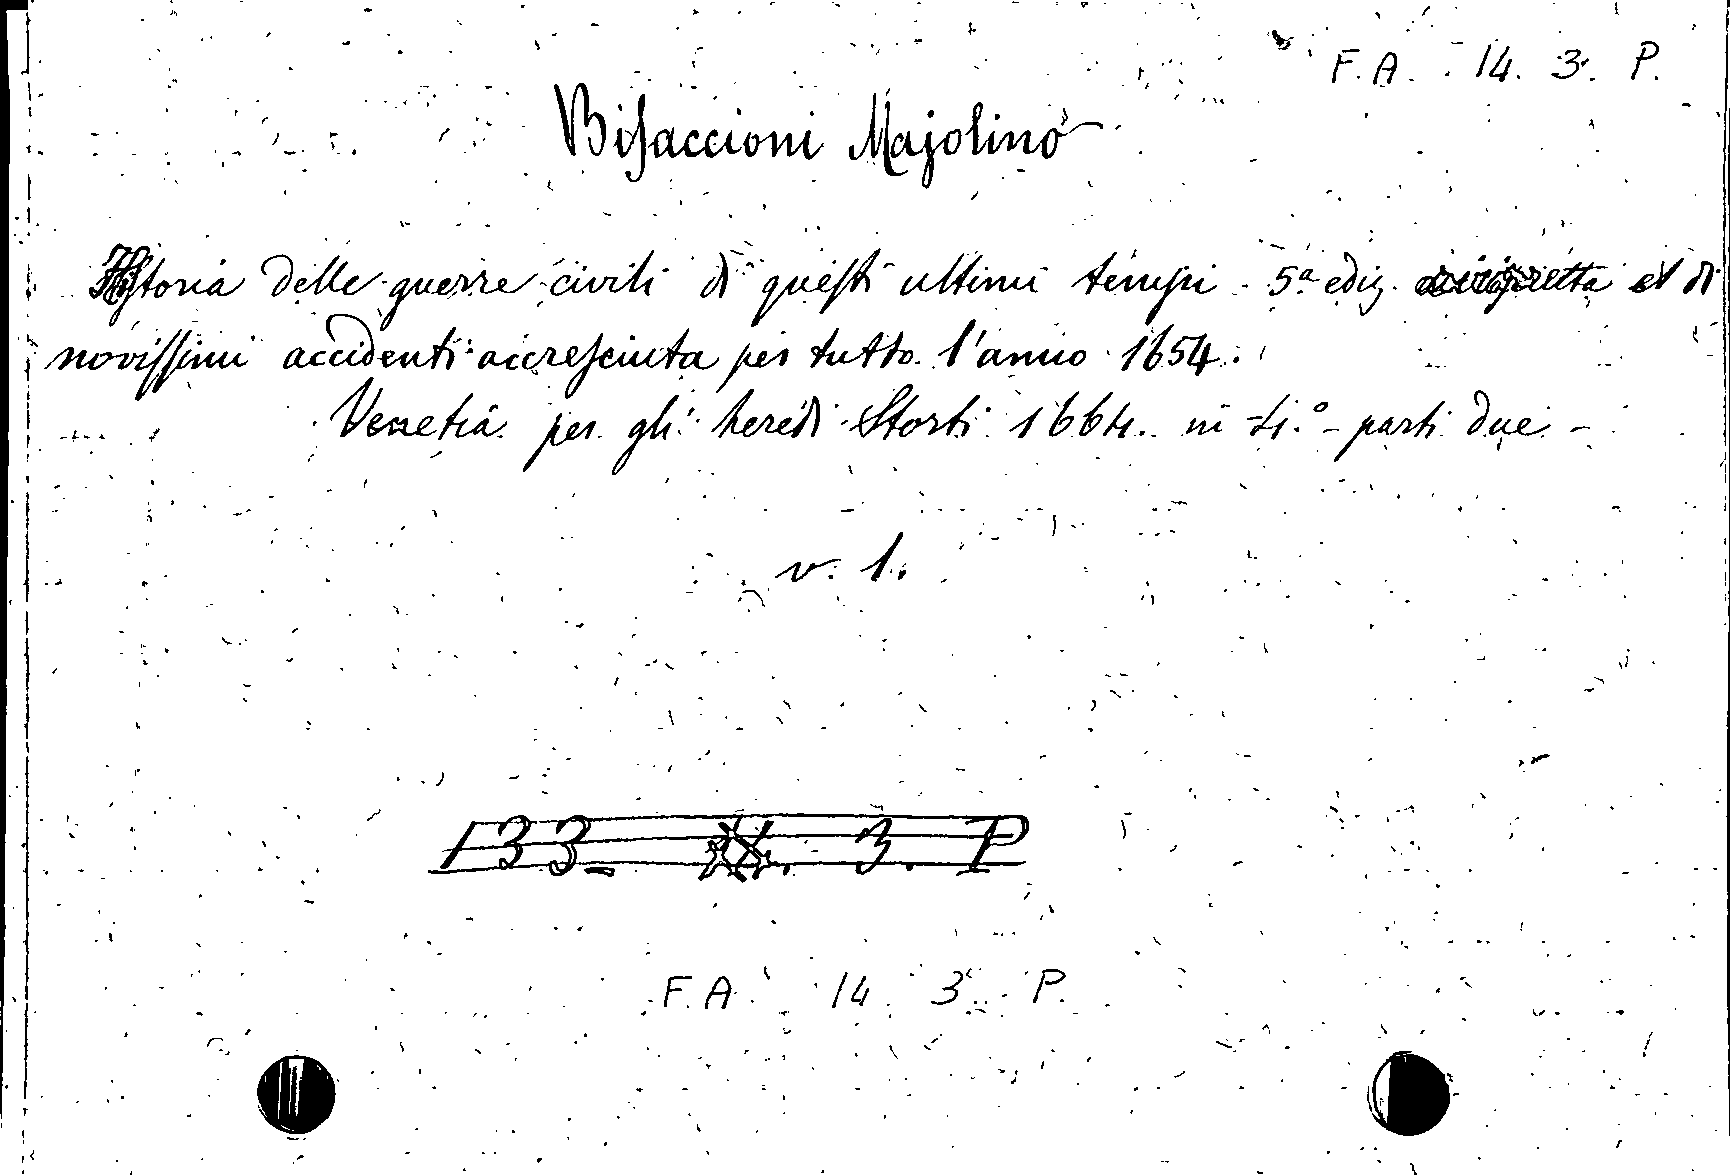 F. A. 14. 3. P.
Biſaccioni Majolino
Hiſtoria delle guerre civili di queſti ultimi tempi - 5ª ediz. et di
noviſſimi accidenti accreſciuta per tutto l'anno 1654.
Venetia per gli heredi Storti 1664. in 4.º - parti due -
v. 1.
133 3. P
F. A. 14 3. P.